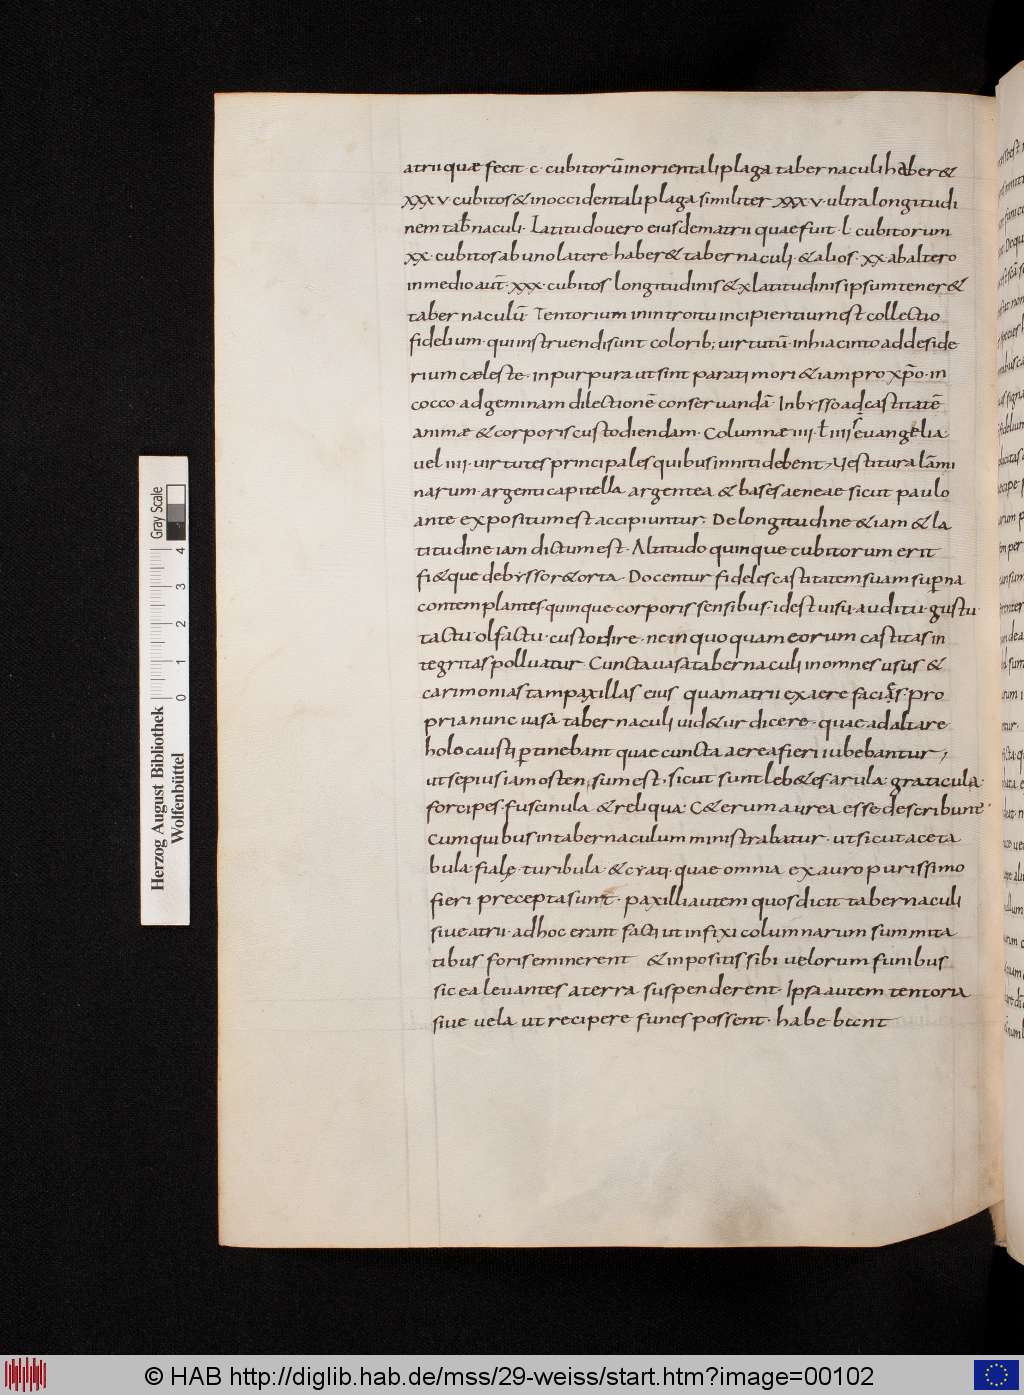 atrii quæ fecit · c · cubitorū in orientali plaga tabernaculi haber&
xxxv · cubitos & in occidentali plaga similiter xxxv · ultra longitudi
nem tab̄naculi · Latitudo uero eiusdem atrii quae fuit · l · cubitorum
xx · cubitos ab uno latere haber& tabernaculi · & alios · xx ab altero
in medio aut̄ · xxx · cubitos longitudinis & x latitudinis ipsum tener&
tabernaculū Tentorium in introitu incipientium est collectio
fidelium · qui instruendi sunt colorib; uirtutū · in hiacinto ad deside
rium cæleste · in purpura ut sint parati mori & iam pro xp̄o · in
cocco · ad geminam dilectionē conseruandā · In bysso ad castitatē
animæ & corporis custodiendam · Columnæ iiii · ł iiii euangelia
uel iiii · uirtutes principales quibus inniti debent, Vestitura lāmi
narum · argenti capitella argentea & bases aeneae sicut paulo
ante expositum est accipiuntur · De longitudine & iam & la
titudine iam dictum est · Altitudo quinque cubitorum erit
fi& que de bysso r&orta · Docentur fideles castitatem suam sup̄na
contemplantes · quinque corporis sensibus · id est uisu · auditu · gustu
tactu · olfactu · custodire · ne in quoquam eorum castitas in
tegritas polluatur Cuncta uasa tabernaculi in omnes usus &
carimonias tam paxillas eius quam atrii ex aere facias · Pro
pria nunc uasa tabernaculi uid&ur dicere · quae ad altare
holocausti p̱tinebant quae cuncta aerea fieri iubebantur,
ut sepius iam ostensum est, sicut sunt leb&es arula graticula ·
forcipes · fuscinula & reliqua · C&erum aurea esse describunt̄
Cum quibus in tabernaculum ministrabatur · ut sicut aceta
bula · fialę · turibula · & cyati · quae omnia ex auro purissimo
fieri precepta sunt · paxilli autem quos dicit tabernaculi
siue atrii · ad hoc erant facti ut infixi columnarum summita
tibus foris eminerent & inpositis sibi uelorum funibus
sic ea leuantes a terra suspenderent · Ipsa autem tentoria
siue uela ut recipere funes possent · habebant
Herzog August Bibliothek
Wolfenbüttel
0 1 2 3 4
Gray Scale
© HAB http://diglib.hab.de/mss/29-weiss/start.htm?image=00102